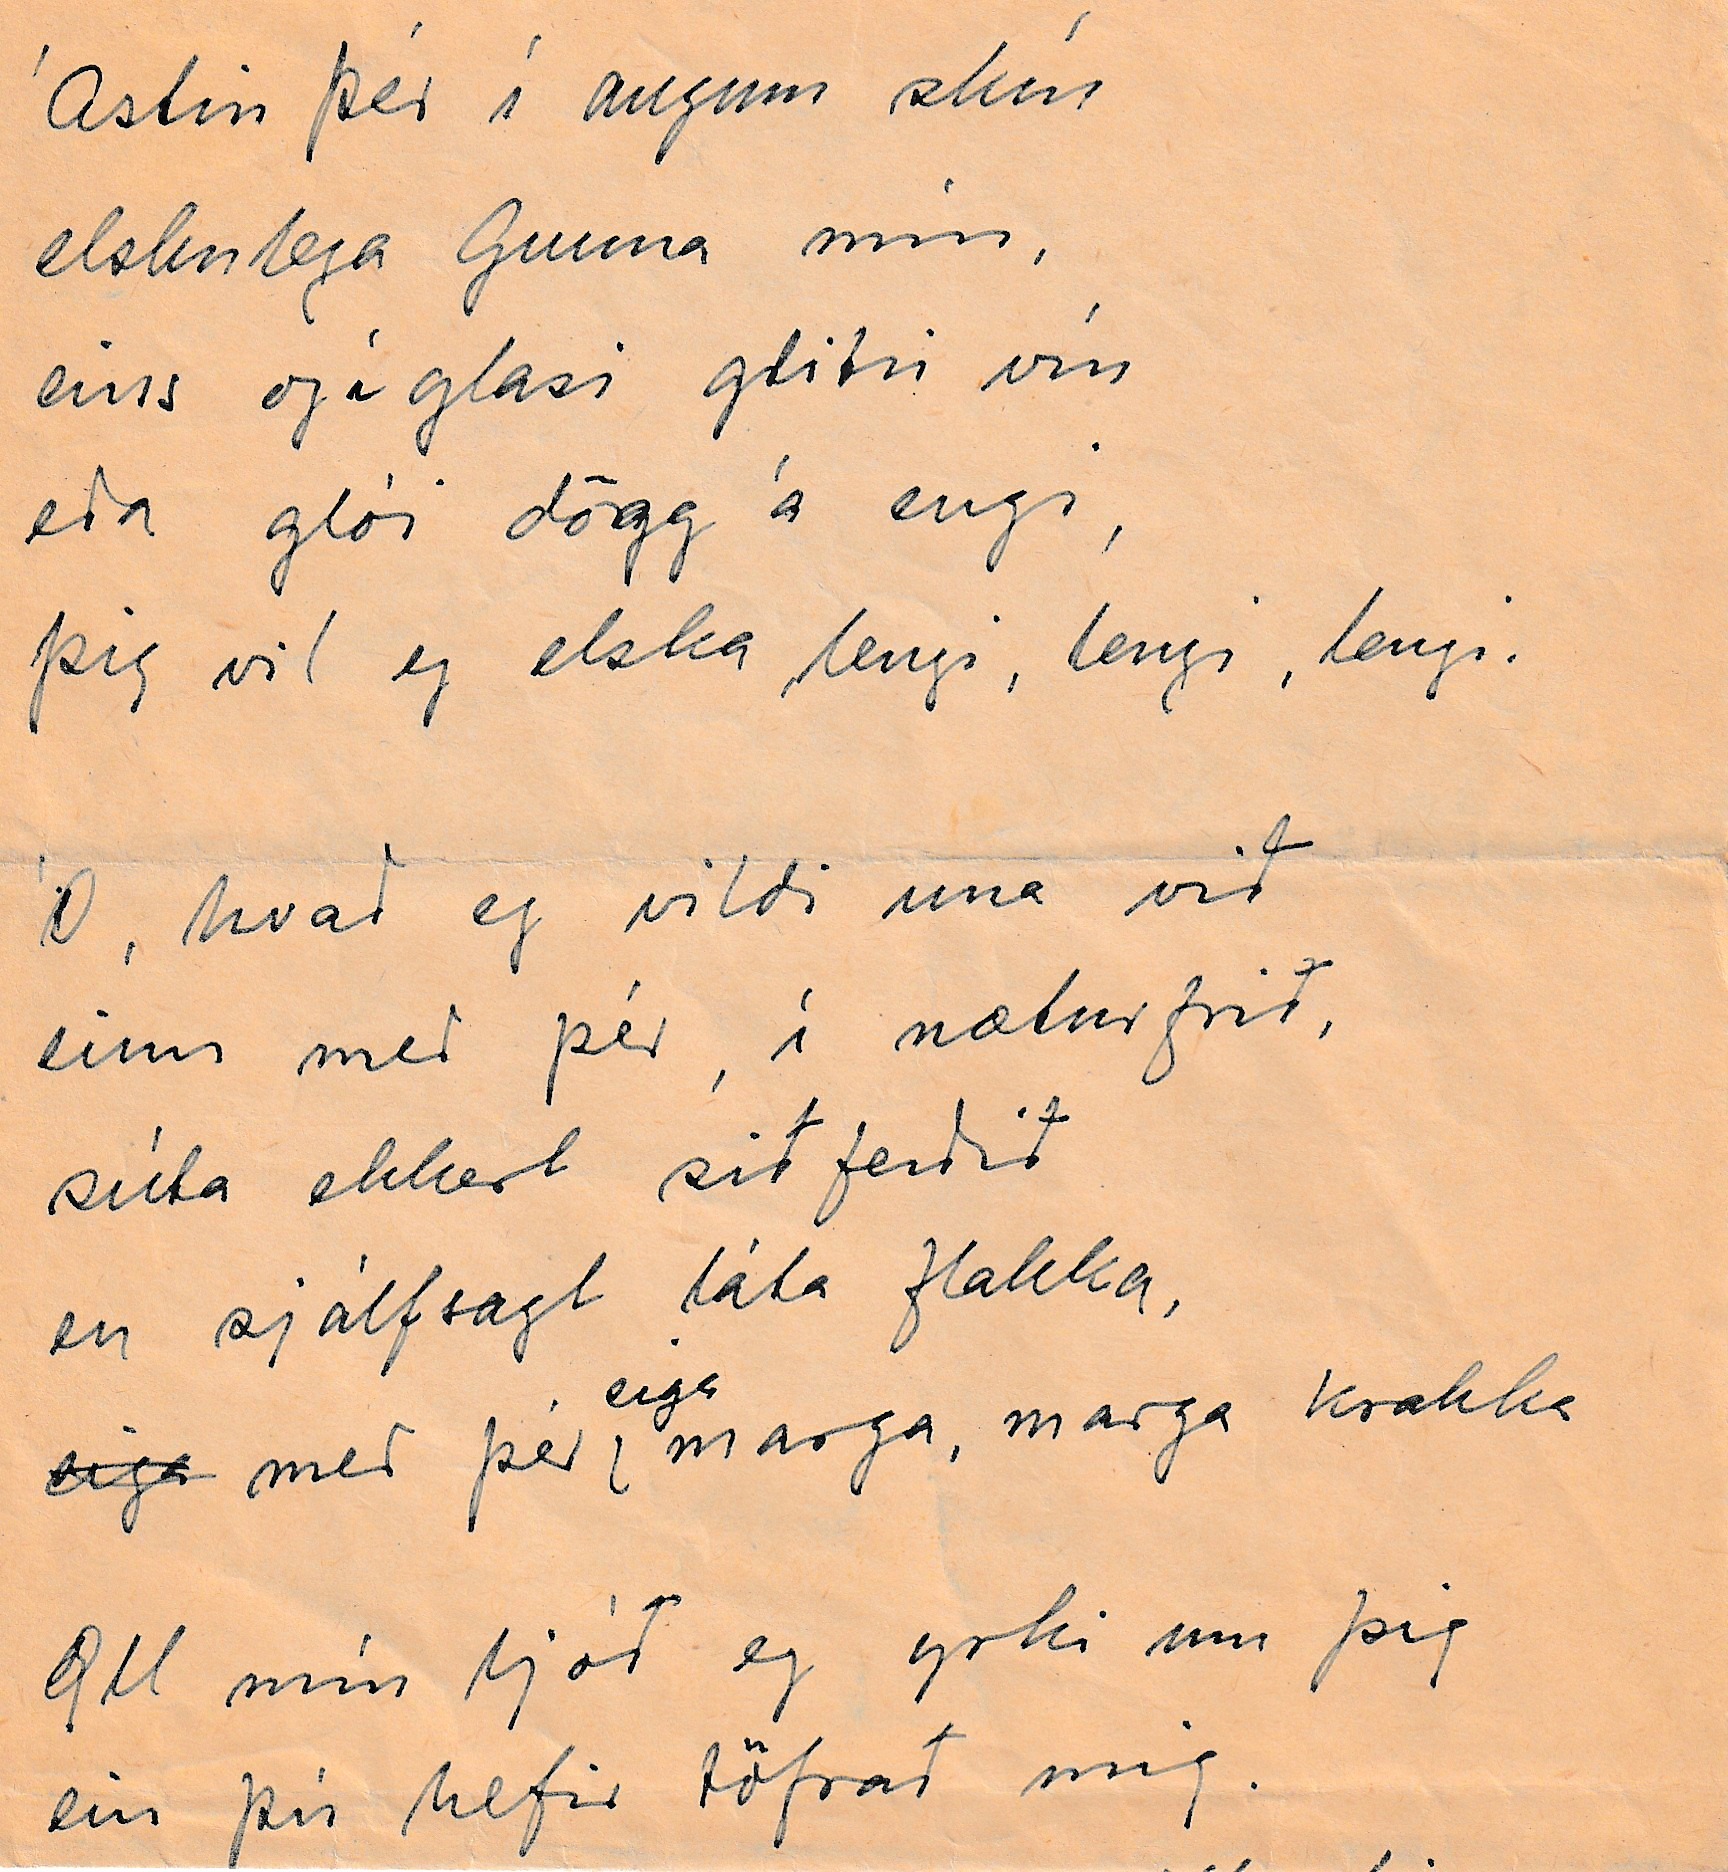 Ástin þér í augum skín
elskulega Gunna mín,
eins og í glasi glitri vín
eða glói dögg á engi,
þig vil eg elska lengi, lengi, lengi.
Ó, hvað eg vildi una við
einn með þér, í næturfrið,
súta ekkert siðferðið
en sjálfsagt láta flakka,
eiga
eiga með þér marga, marga krakka
Öll mín ljóð eg yrki um þig
ein þú hefir töfrað mig.